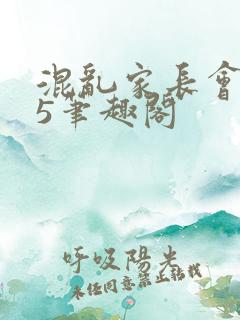 混亂家長會
5笔趣阁
呼吸陽光
未经同意禁止转载